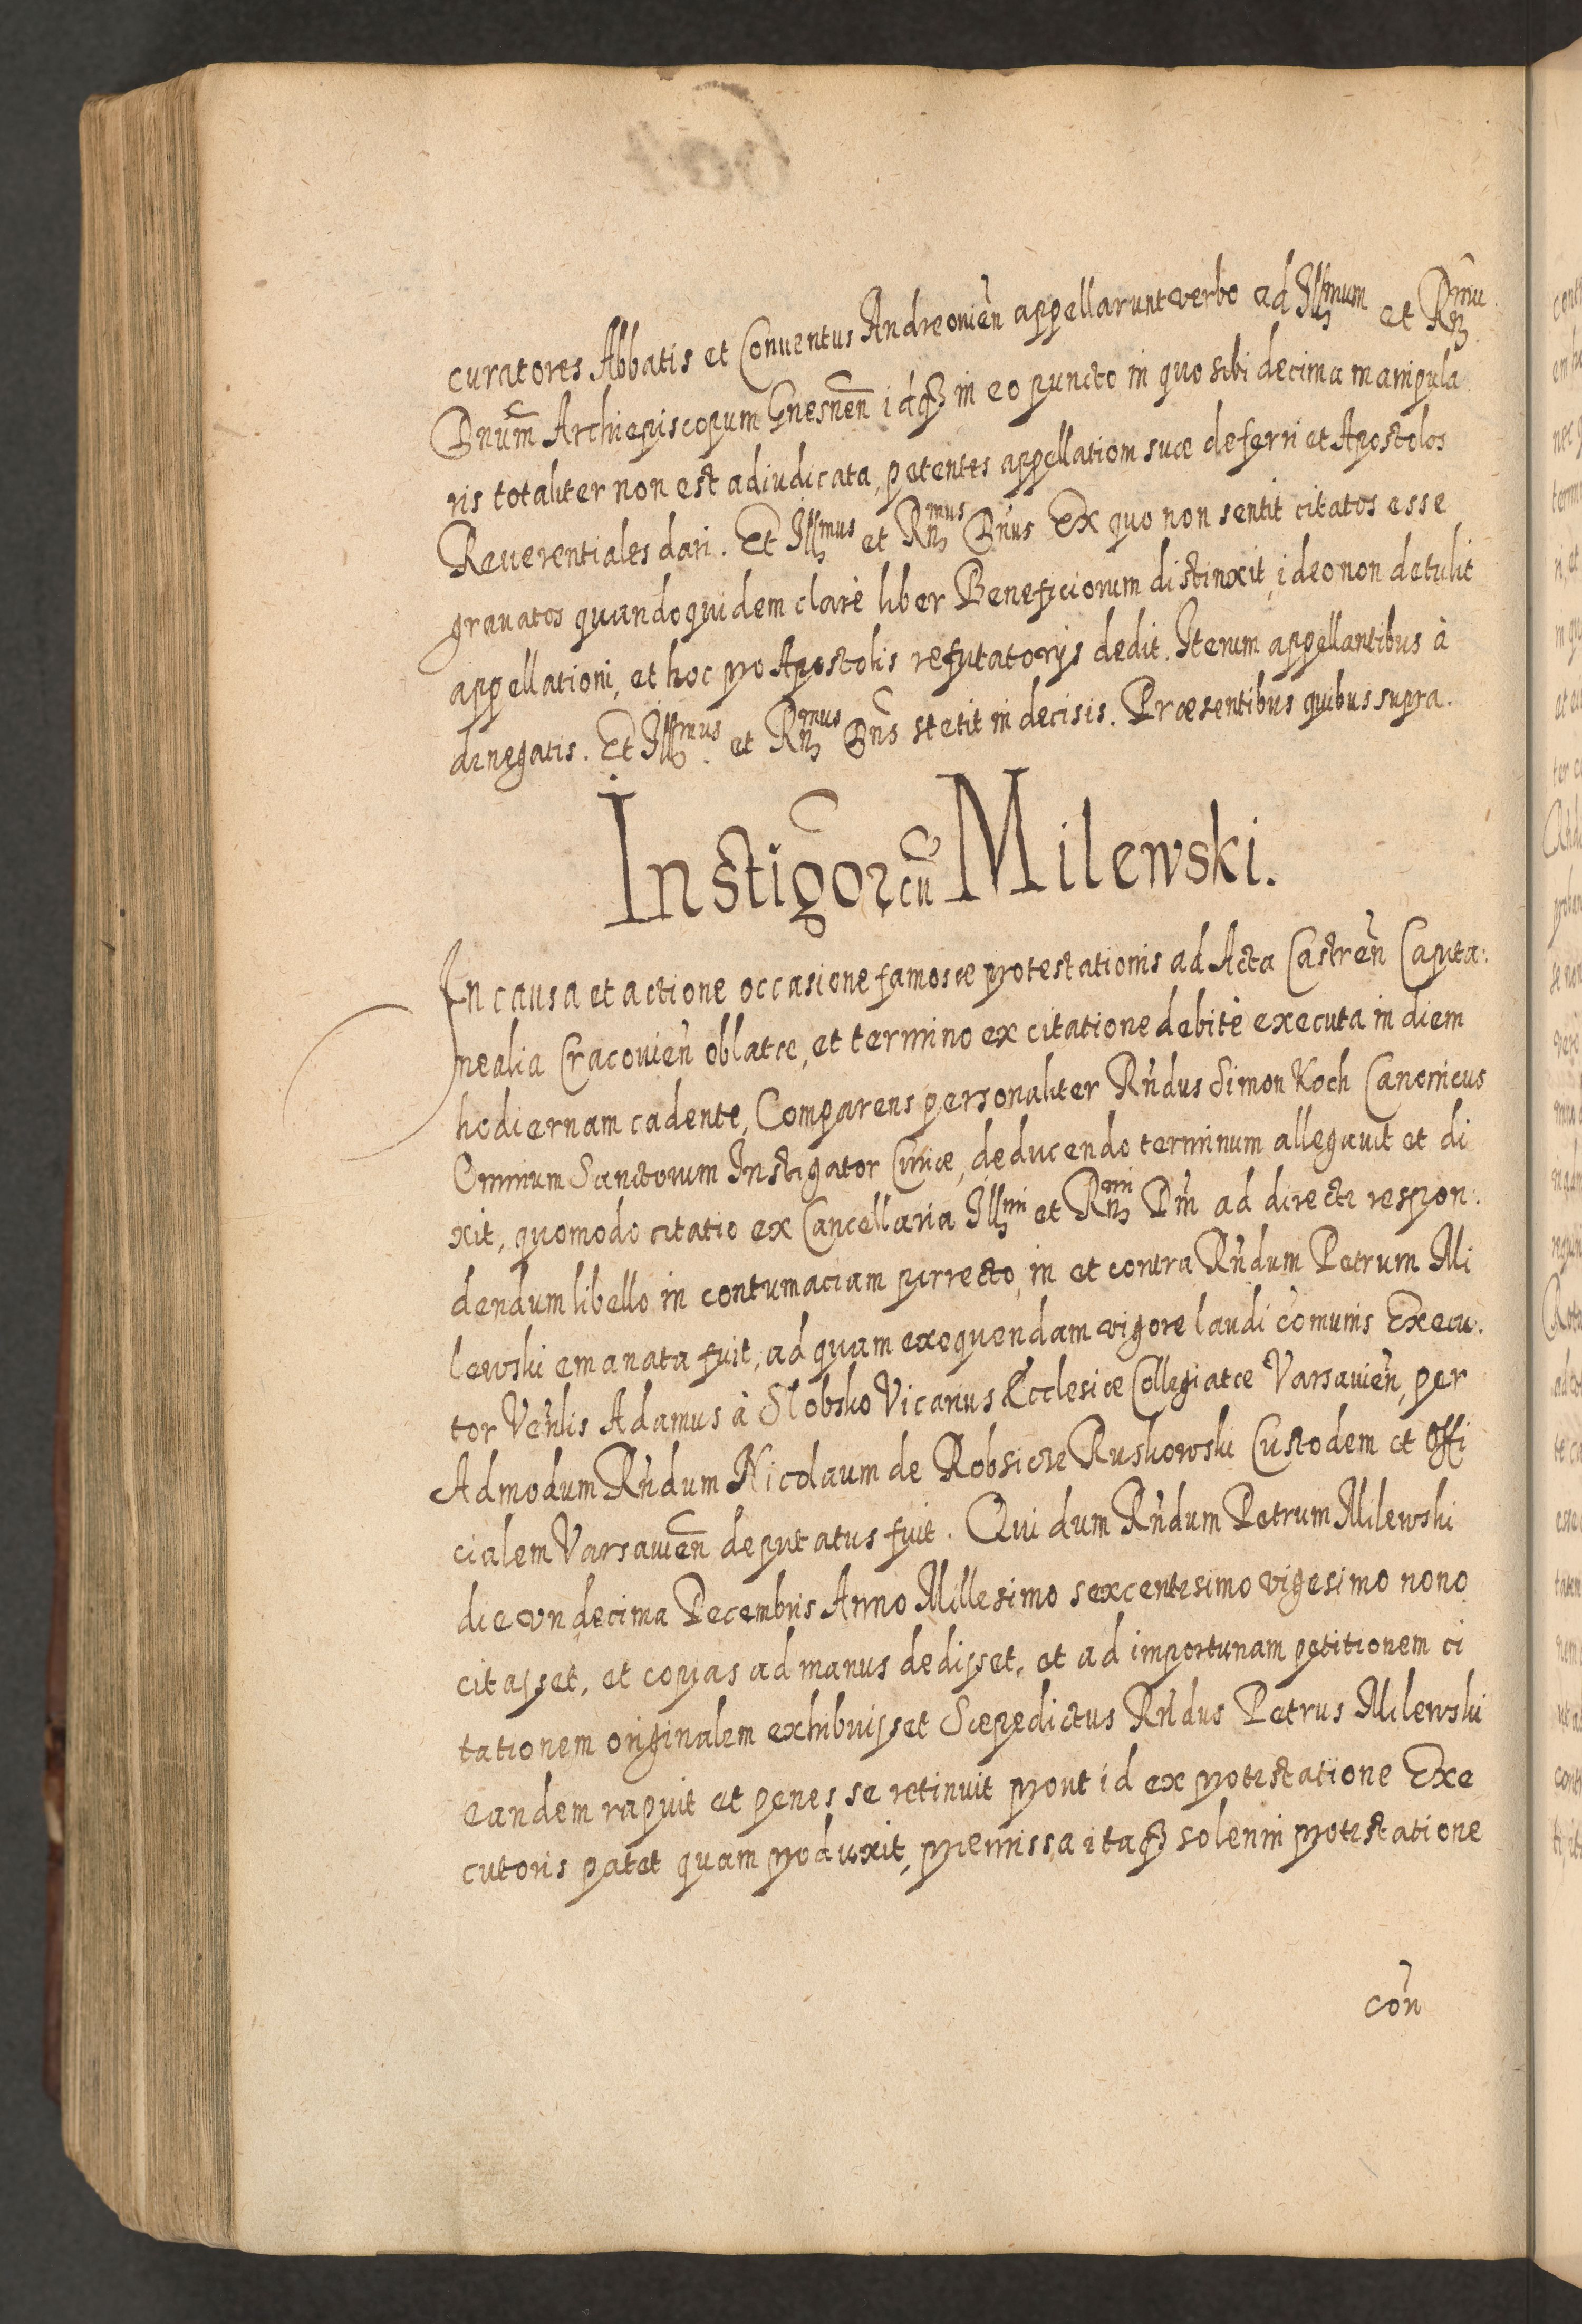 curatores Abbatis et Conuentus Andreouien̄ appellarunt verbo ad Illmum et Rmu
Dnum Archiepiscopum Gnesnen̄ idq₃ in eo puncto in quo sibi decima manipula
ris totaliter non est adiudicata, petentes appellationi suæ deferri et Apostolos
Reuerentiales dari. Et Illmus et Rmus Dnus Ex quo non sentit citatos esse
grauatos quandoquidem clarè liber Beneficiorum distinxit, ideo non detulit
appellationi, et hoc pro Apostolis refutatorijs dedit. Iterum appellantibus à
denegatis. Et Illmus et Rmus Dns stetit in decisis. Præsentibus quibus supra.
Instigor cū Milewski.
In causa et actione occasione famosæ protestationis ad Acta Castren̄ Capita:
nealia Cracouien̄ oblatæ, et termino ex citatione debitè executa in diem
hodiernam cadente, Comparens personaliter Rndus Simon Koch Canonicus
Omnium Sanctorum Instigator Curiæ, deducendo terminum allegauit et di
xit, quomodo citatio ex Cancellaria Illmi et Rmi Dni ad directe respon:
dendum libello in contumaciam porrecto, in et contra Rndum Petrum Mi
lewski emanata fuit, ad quam exequendam vigore laudi comunis Execu:
tor Venlis Adamus à Slobsko Vicarius Ecclesiæ Collegiatæ Varsauien̄, per
Admodum Rndum Nicolaum de Robsicze Ruskowski Custodem et Offi
cialem Varsauien̄ deputatus fuit. Qui dum Rndum Petrum Milewski
die vndecima Decembris Anno Millesimo sexcentesimo vigesimo nono
citasset, et copias ad manus dedisset, et ad importunam petitionem ci
tationem originalem exhibuisset Sæpedictus Rndus Petrus Milewski
eandem rapuit et penes se retinuit prout id ex protestatione Exe
cutoris patet quam produxit, præmissa itaq₃ solenni protestatione
con̄